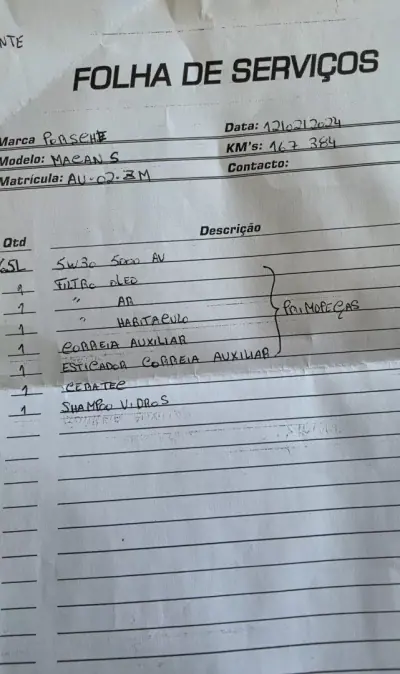 NTE
FOLHA DE SERVIÇOS
Marca PORSCHE
Data: 12/02/2024
Modelo: MACAN S
KM's: 167 384
Matrícula: AU-02-ZM
Contacto:
Qtd Descrição
6,5L 5W30 5000 AV
1 FILTRO OLEO
1 " AR
1 " HABITACULO
PRIMOPEÇAS
1 CORREIA AUXILIAR
1 ESTICADOR CORREIA AUXILIAR
1 CERATEC
1 SHAMPOO VIDROS